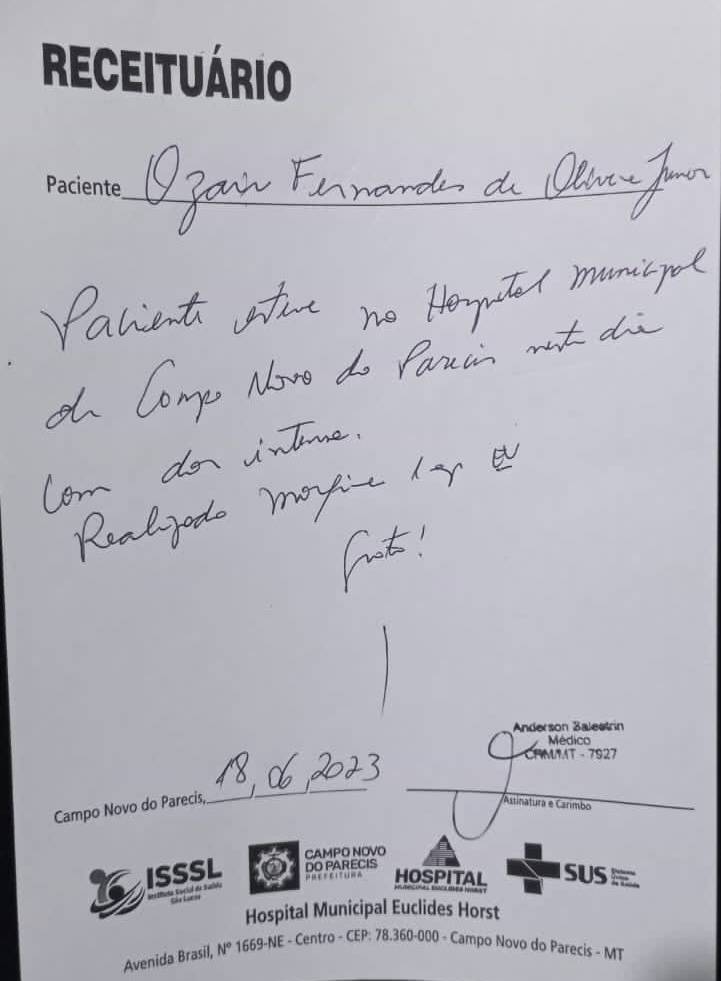 RECEITUÁRIO
Paciente Ozair Fernandes de Olivera Junior
Paciente esteve no Hospital municipal
de Campo Novo do Parecis neste dia
com dor intensa.
Realizado morfina 1 ap EV
Grato!
Anderson Balestrin
Médico
CRM/MT - 7927
Campo Novo do Parecis, 18, 06, 2023
Assinatura e Carimbo
ISSSL
Instituto Social de Saúde
São Lucas
CAMPO NOVO
DO PARECIS
PREFEITURA
HOSPITAL
MUNICIPAL EUCLIDES HORST
SUS
Sistema
Único
de Saúde
Hospital Municipal Euclides Horst
Avenida Brasil, Nº 1669-NE - Centro - CEP: 78.360-000 - Campo Novo do Parecis - MT